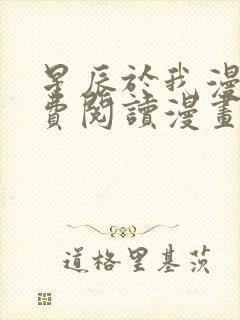 星辰於我漫
費閱讀漫畫
道格里基茨